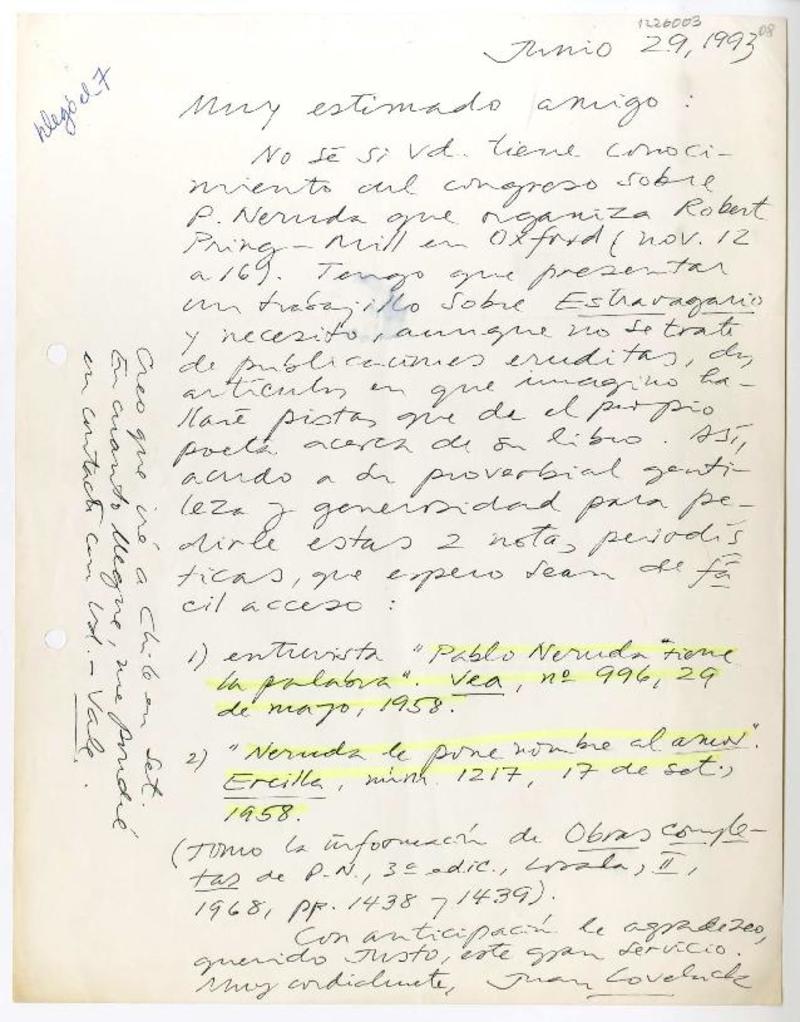 1226003
08
Junio 29, 1993
Llegó el 7
Muy estimado amigo :
No sé si Vd. tiene conoci-
miento del congreso sobre
P. Neruda que organiza Robert
Pring-Mill en Oxford (nov. 12
a 16). Tengo que presentar
un trabajillo sobre Estravagario
y necesito, aunque no se trate
de publicaciones eruditas, dos
artículos en que imagino ha-
llaré pistas que da el propio
poeta acerca de su libro. Así,
acudo a su proverbial genti-
leza y generosidad para pe-
dirle estas 2 notas periodís
ticas, que espero sean de fá
cil acceso :
1) entrevista "Pablo Neruda tiene
la palabra". Vea, nº 996, 29
de mayo, 1958.
2) "Neruda le pone nombre al amor".
Ercilla, núm. 1217, 17 de set.,
1958.
(Tomo la información de Obras comple-
tas de P.N., 3ª edic., Losada, II,
1968, pp. 1438 y 1439).
Con anticipación le agradezco,
querido Justo, este gran servicio.
Muy cordialmente, Juan Loveluck
Creo que iré a Chile en Set.
En cuanto llegue, me pondré
en contacto con Vd. - Vale.